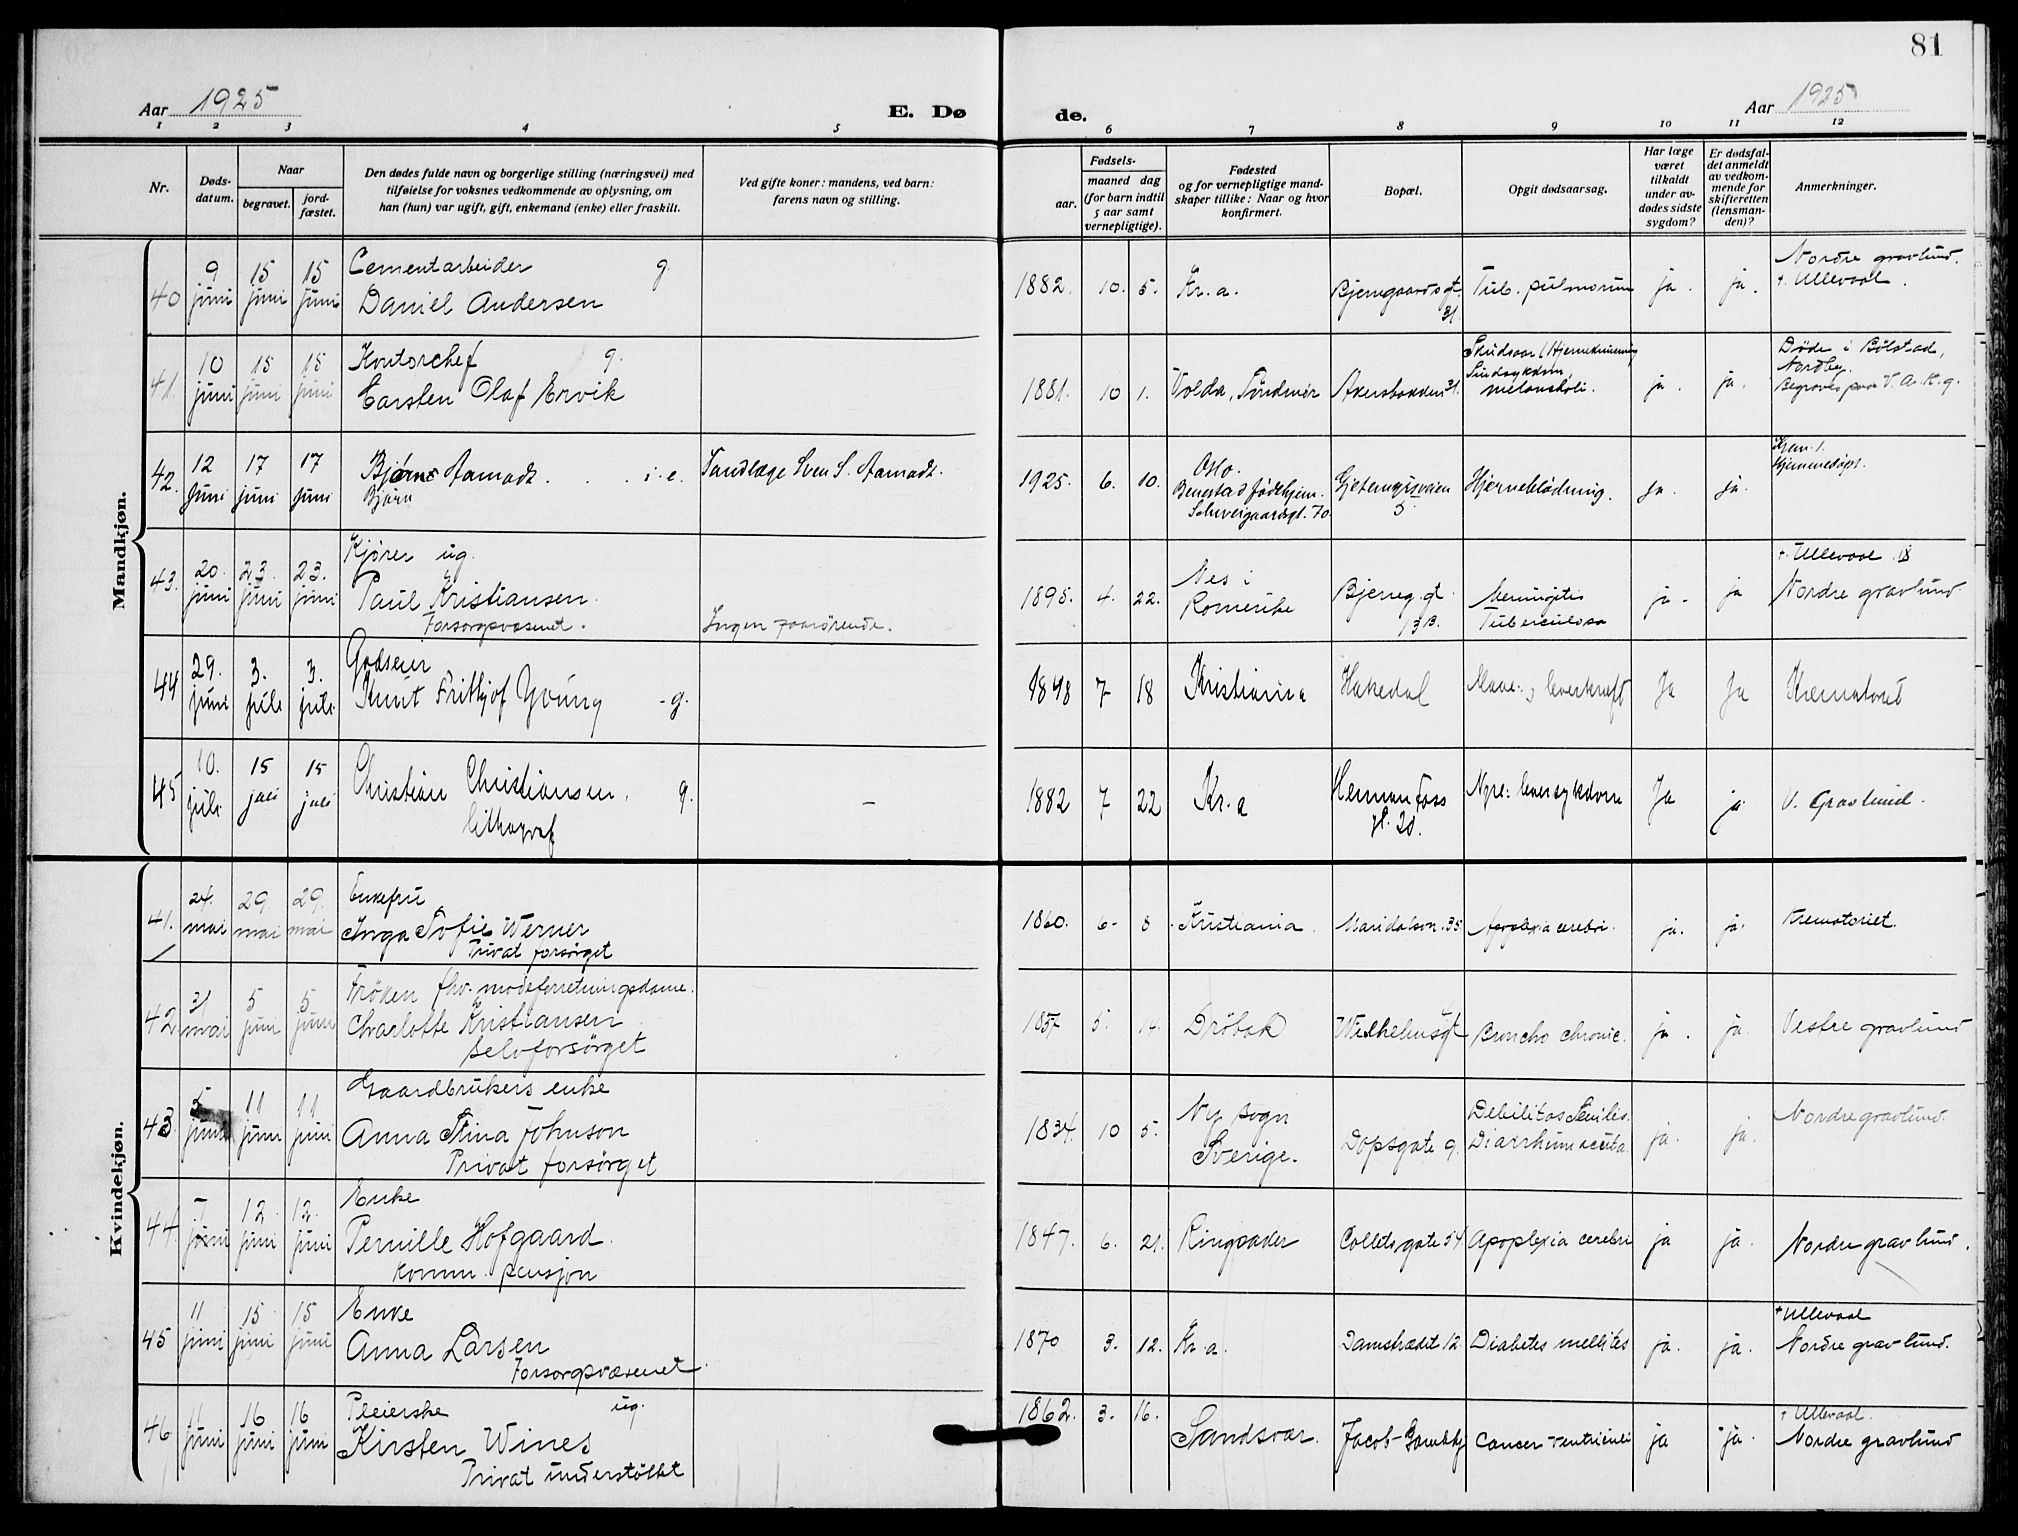 81
Aar 1925
E. Døde.
Aar 1925
1 2 3 4 5 6 7 8 9 10 11 12
Nr.
Døds-
datum.
Naar
begravet.
jord-
fæstet.
Den dødes fulde navn og borgerlige stilling (næringsvei) med
tilføielse for voksnes vedkommende av oplysning, om
han (hun) var ugift, gift, enkemand (enke) eller fraskilt.
Ved gifte koner: mandens, ved barn:
farens navn og stilling.
Fødsels-
aar.
maaned dag
(for barn indtil
5 aar samt
vernepligtige).
Fødested
og for vernepligtige mand-
skaper tillike: Naar og hvor
konfirmert.
Bopæl.
Opgit dødsaarsag.
Har læge
været
tilkaldt
under av-
dødes sidste
sygdom?
Er dødsfal-
det anmeldt
av vedkom-
mende for
skifteretten
(lensman-
den)?
Anmerkninger.
Mandkjøn.
40
9 juni
15 juni
15 juni
Cementarbeider g.
Daniel Andersen
1882. 10. 5.
Kr.a.
Bjerregaardsgt.
31
Tub. pulmonum
ja.
ja.
Nordre gravlund.
+. Ullevaal.
41.
10 juni
15 juni
15 juni
Kontorchef g.
Carsten Olaf Ervik
1881. 10 1.
Volda, Söndmör
Akersbakken 31.
Skudsaar (Hjerneknusning
Sindsykdom,
melancholi.
ja.
ja.
Døde i Bölstad,
Nordby.
Begraves paa V. A. K. g.
42.
12 juni
17 juni
17 juni
Bjørne Aamodt. . . i. e.
Bjørn
Tandlæge Sven S. Aamodt.
1925. 6. 10.
Oslo.
Benestad fødehjem.
Schweigaardsgt. 70
Gjetemyrsveien
5
Hjerneblödning.
ja.
ja.
Hjemmedöpt.
43.
20. juni
23. juni
23. juni
Kjører ug.
Paul Kristiansen.
Forsorgsvæsenet.
Ingen paarörende.
1895. 4. 22.
Nes i
Romerike
Bjerreg. gt.
13 B.
Meningitis
Tuberculosa
ja.
ja
+. Ullevaal
Nordre gravlund.
44
29. juni
3. juli
3. juli
Godseier
Knut Frithjof Young - g.
1848 7 18
Kristiania
Hakedal
Mave- og leverkræft
Ja
Ja
Krematoriet
45
10. juli
15 juli
15 juli
Christian Christiansen, g.
lithograf
—
1882 7 22
Kr.a
Herman Foss
gt. 20.
Nyre: leversykdom
Ja
ja
V. Gravlund.
Kvindekjøn.
41.
24. mai
29. mai
29. mai
Enkefru
Inga Sofie Werner
Privat forsörget
1860. 6- 8
Kristiania
Maridalsvn. 35
Apoplexia cerebri.
ja.
ja.
Krematoriet.
42.
31 mai
5 juni
5 juni
Fröken fhv. modeforretningsdame.
Charlotte Kristiansen
selvforsörget
1857 5. 14.
Dröbak
Wilhelmsgt
Broncho chronic.
ja.
ja.
Vestre gravlund
43.
5 juni
11 juni
11 juni
Gaardbrukers enke
Anna Stina Johnson
Privat forsörget
1834. 10 5.
Ny sogn
Sverige.
Dopsgate 9.
Debilitas Senilis.
Diarrhum acuta.
ja.
ja.
Nordre gravlund.
44.
7 juni
12 juni
12. juni
Enke
Pernille Hofgaard.
komm. pensjon
1847. 6. 21.
Ringsaker
Collets gate 54
Apoplexia cerebri
ja
ja.
Nordre gravlund.
45
11 juni
15 juni
15 juni
Enke
Anna Larsen
Forsorgsvæsenet.
1870 3. 12.
Kr.a.
Damstrædet 12.
Diabetes mellites
ja.
ja.
+ Ullevaal
Nordre gravlund.
46
11 juni
16 juni
16 juni
Pleierske ug.
Kirsten Wines
Privat understöttet
1862. 3. 16.
Sandsvær.
Cancer ventriculi
ja
ja.
+ Ullevaal.
Nordre gravlund